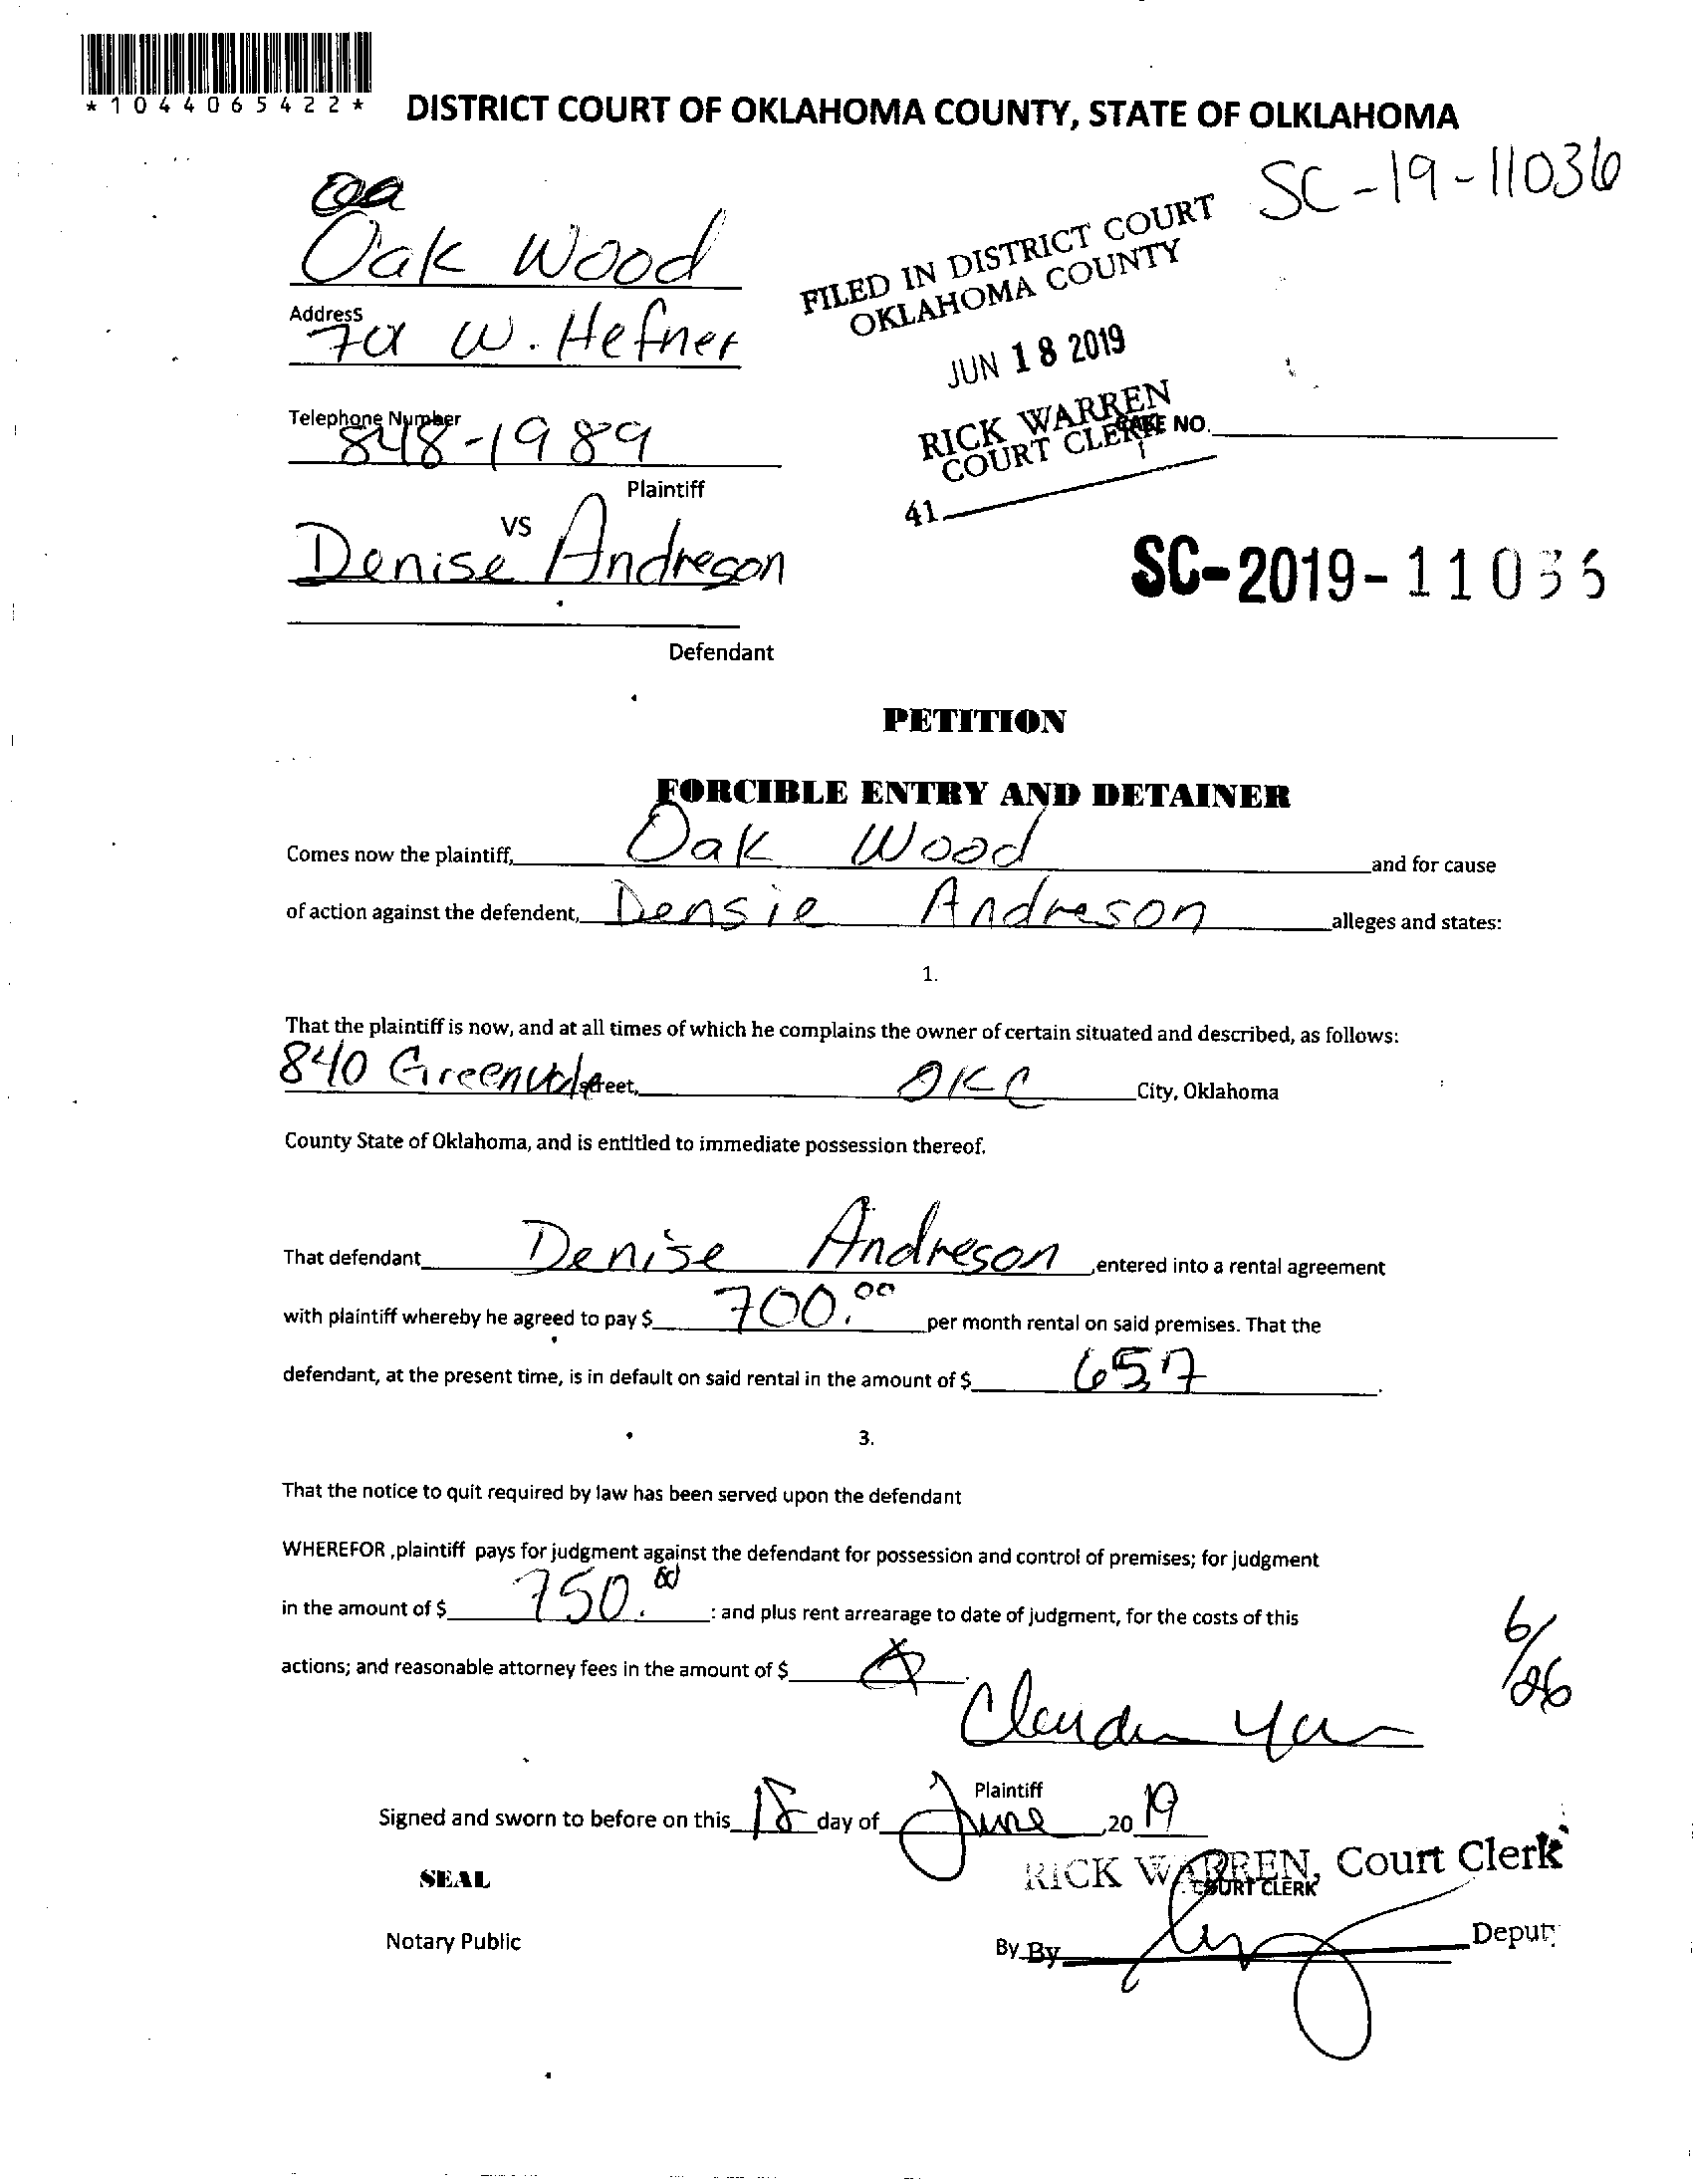 *1044065422*
DISTRICT COURT OF OKLAHOMA COUNTY, STATE OF OLKLAHOMA
SC-19-11036
Oak Wood
FILED IN DISTRICT COURT
OKLAHOMA COUNTY
Address
W. Hefner
JUN 18 2019
Telephone Number
848-1989
RICK WARREN
COURT CLERK
CASE NO.
Plaintiff
41
VS
Denise Andreson
SC-2019-11036
Defendant
PETITION
FORCIBLE ENTRY AND DETAINER
Comes now the plaintiff, Oak Wood and for cause
of action against the defendent, Densie Andreson alleges and states:
1.
That the plaintiff is now, and at all times of which he complains the owner of certain situated and described, as follows:
840 street, OKC City, Oklahoma
County State of Oklahoma, and is entitled to immediate possession thereof.
That defendant Denise Andreson ,entered into a rental agreement
with plaintiff whereby he agreed to pay $ 700.00 per month rental on said premises. That the
defendant, at the present time, is in default on said rental in the amount of $ 657.
3.
That the notice to quit required by law has been served upon the defendant
WHEREFOR ,plaintiff pays for judgment against the defendant for possession and control of premises; for judgment
in the amount of $ 750.00 : and plus rent arrearage to date of judgment, for the costs of this
actions; and reasonable attorney fees in the amount of $
6/26
Plaintiff
Signed and sworn to before on this 18 day of June ,20 19
RICK WARREN, Court Clerk
COURT CLERK
SEAL
Notary Public
By By Deputy